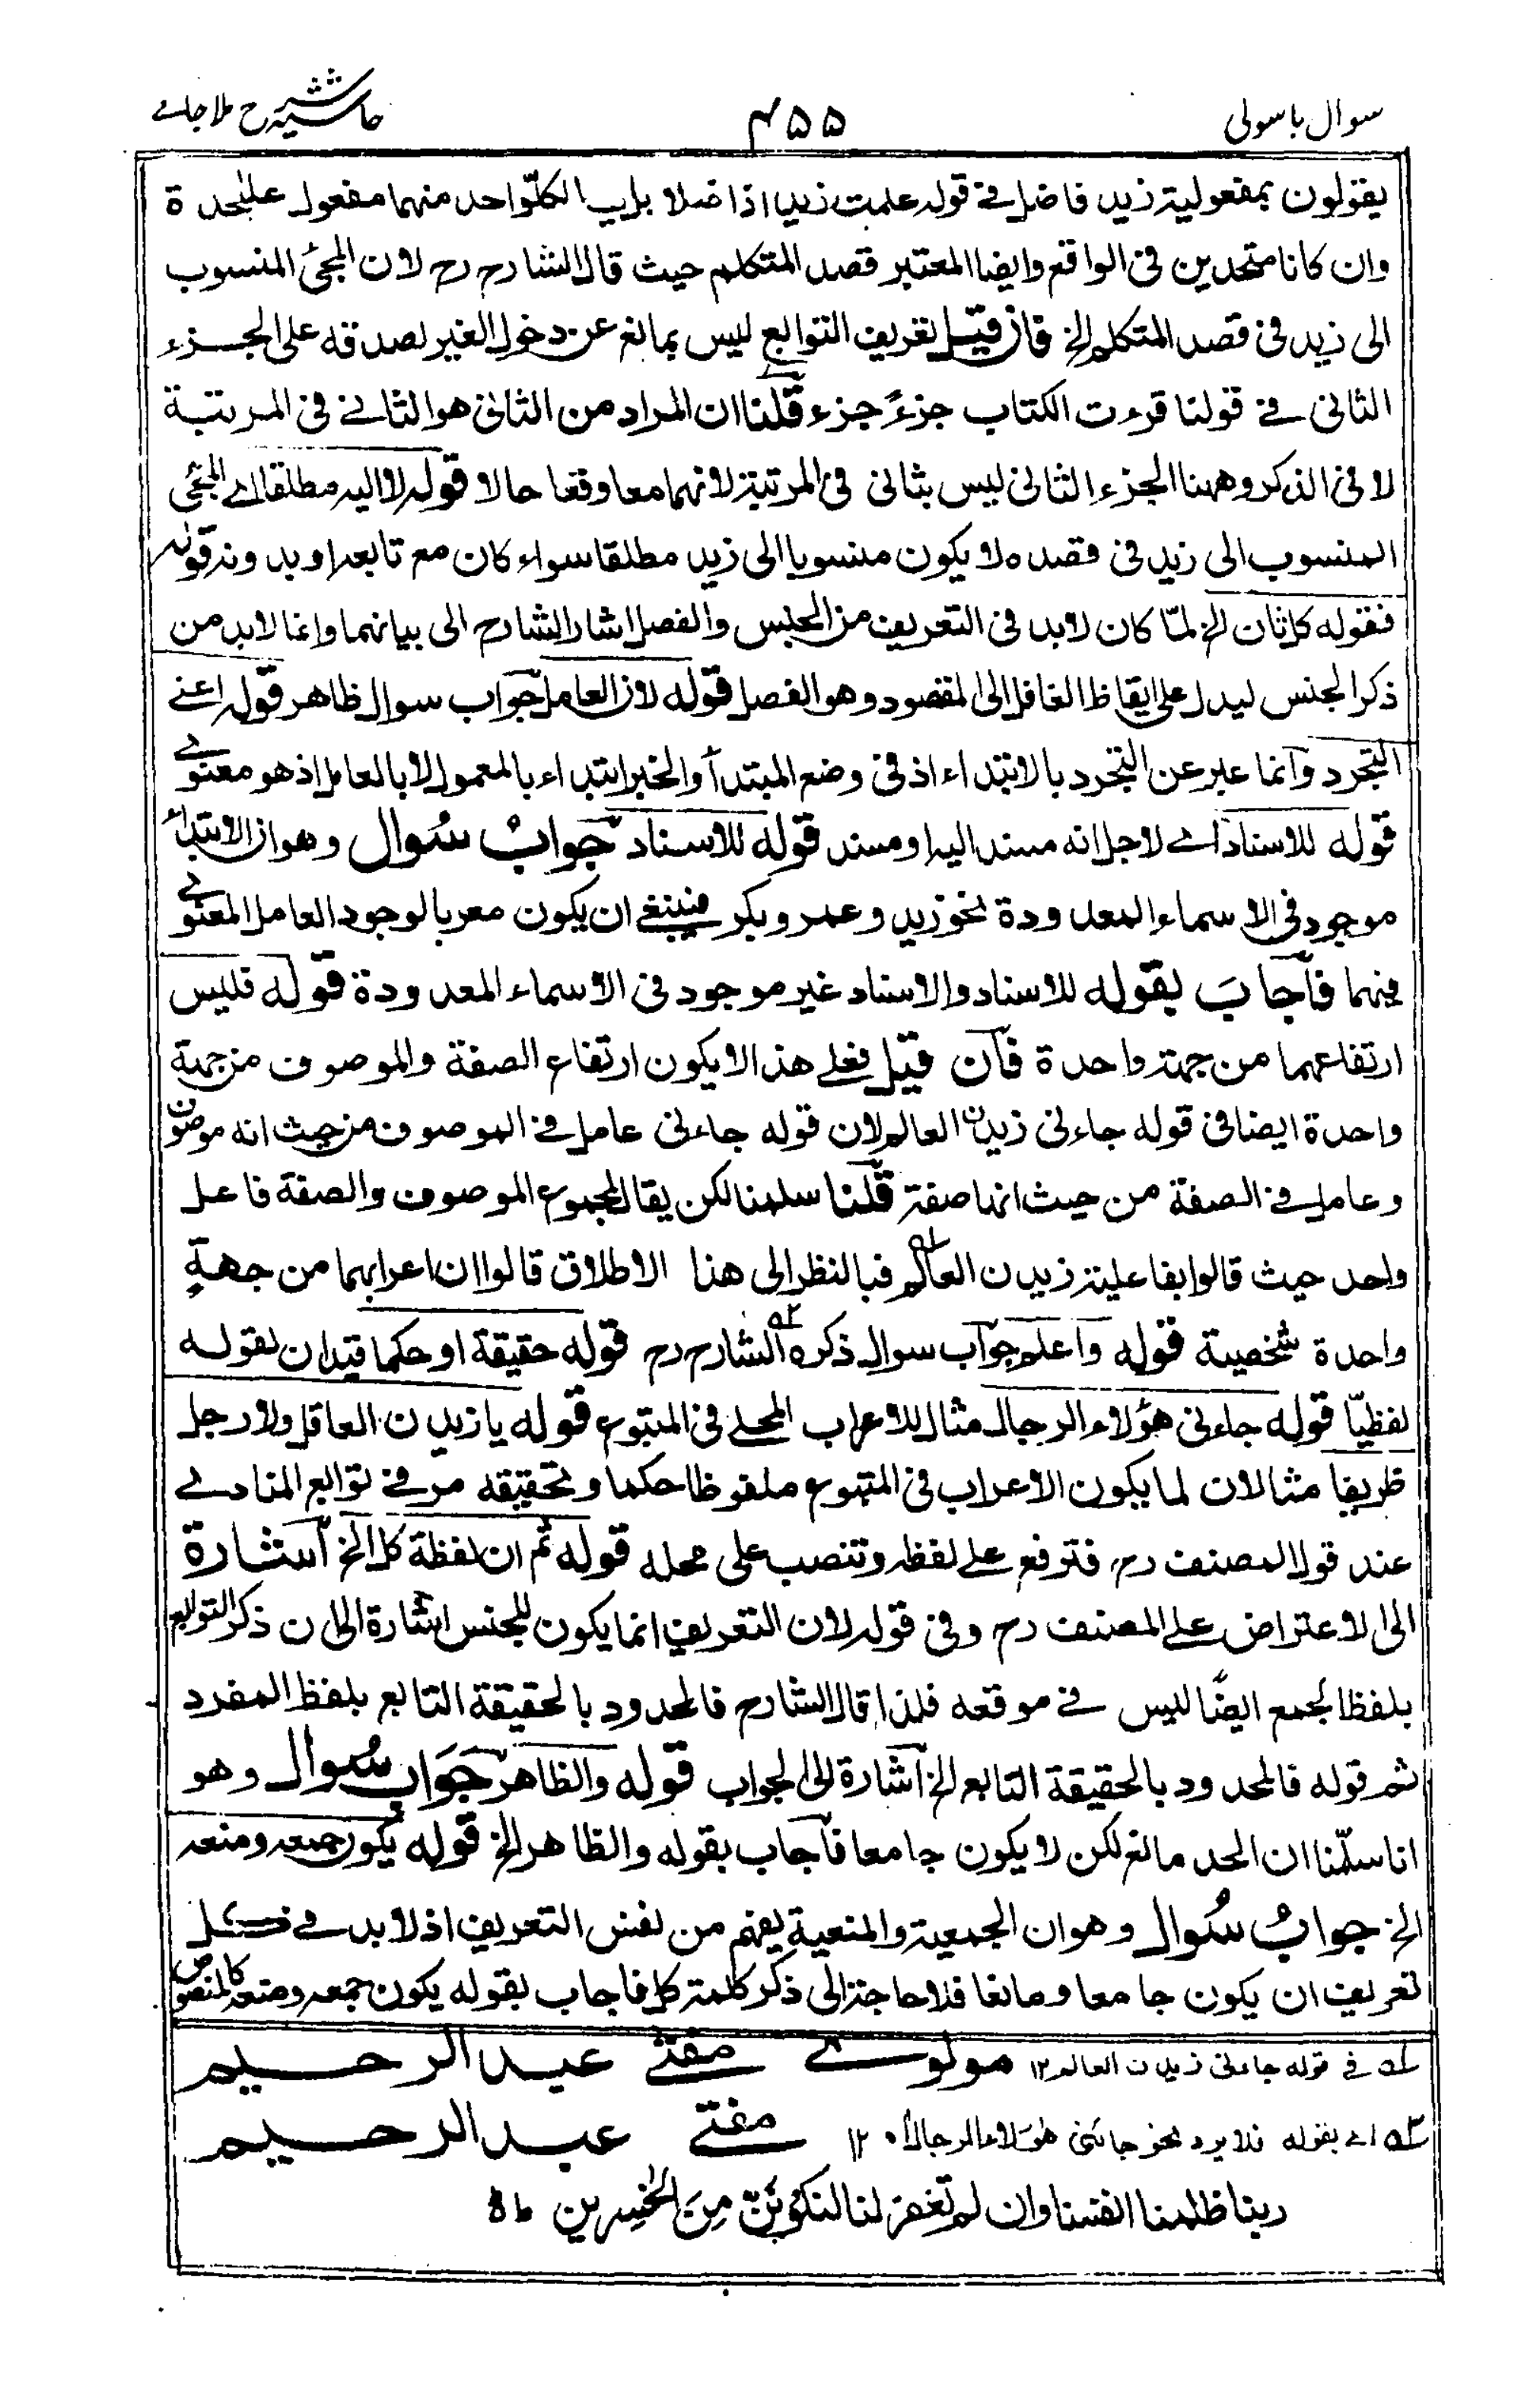 سوال باسولی ۴۵۵ حاشیہ شرح ملا جامے
يقولون بمفعولية زيد فاضل فى قوله علمت زيدا فاضلا بل يب لكل واحد منهما مفعول عليحدة
وان كانا متحدين فى الواقع وايضا المعتبر قصد المتكلم حيث قال الشارح رح لان المجئ المنسوب
الى زيد فى قصد المتكلم الخ فان قيل تعريف التوابع ليس بمانع عن دخول الغير لصدقه على الجزء
الثانى فى قولنا قرءت الكتاب جزءً جزء قلنا ان المراد من الثانى هو الثانى فى المرتبة
لا فى الذكر وههنا الجزء الثانى ليس بثانى فى المرتبة لانهما معا وقعا حالا قوله لا اليه مطلقا اے المجئى
المنسوب الى زيد فى قصده لا يكون منسوبا الى زيد مطلقا سواء كان مع تابعه او بدونه قوله
فقوله كل ثان الخ لمّا كان لابد فى التعريف من الجنس والفصل اشار الشارح الى بيانهما وانما لابد من
ذكر الجنس ليدل على ايقاظ الغافل الى المقصود وهو الفصل قوله لان العامل جواب سوال ظاهر قوله اعنے
التجرد وانما عبر عن التجرد بالابتداء اذ فى وضع المبتدأ والخبر ابتداء بالمعمول لا بالعامل اذ هو معنوى
قوله للاسناد اے لاجل انه مسند اليه او مسند قوله للاسناد جوابُ سُوال وهو ان الابتداء
موجود فى الاسماء المعدودة نحو زيد وعمرو بكر فينبغے ان يكون معربا لوجود العامل المعنوى
فيهما فاجابَ بقوله للاسناد والاسناد غير موجود فى الاسماء المعدودة قوله فليس
ارتفاعهما من جهة واحدة فان قيل فعلے هذا لا يكون ارتفاع الصفة والموصوف من جهة
واحدة ايضا فى قوله جاءنى زيدن العالم لان قوله جاءنى عامل فى الموصوف من حيث انه موصوف
وعامل فى الصفة من حيث انها صفة قلنا سلمنا لكن يقال لمجموع الموصوف والصفة فاعل
واحد حيث قالوا بفاعلية زيدن العالم فبالنظر الى هذا الاطلاق قالوا ان اعرابهما من جهةٍ
واحدة شخصية قوله واعلم جواب سوال ذكره الشارح رح قوله حقيقة او حكما قيدان لقوله
لفظيّا قوله جاءنى هؤلاء الرجال مثال للاعراب المحلے فى المتبوع قوله يا زيدن العاقل ولا رجل
ظريفا مثالان لما يكون الاعراب فى المتبوع ملفوظا حكما وتحقيقه مرّ فى توابع المنادى
عند قول المصنف رح فترفع على لفظه وتنصب على محله قوله ثم ان لفظة كل الخ اشارة
الى الاعتراض على المصنف رح وفى قوله لان التعريف انما يكون للجنس اشارة الى ان ذكر التوابع
بلفظ الجمع ايضًا ليس فى موقعه فلذا قال الشارح فالمحدود بالحقيقة التابع بلفظ المفرد
ثم قوله فالمحدود بالحقيقة التابع الخ اشارة الى الجواب قوله والظاهر جَوَاب سُوال وهو
انا سلّمنا ان الحد مانع لكن لا يكون جامعا فاجاب بقوله والظاهر الخ قوله يكون جمعه ومنعه
الخ جوابُ سُوال وهو ان الجمعية والمنعية يفهم من نفس التعريف اذ لابد فى كل
تعريف ان يكون جامعا ومانعا فلا حاجة الى ذكر كلمة كل فاجاب بقوله يكون جمعه ومنعه كالمنصوص
لـه فى قوله جاءنى زيدن العالم ١٢ مولوے مفتے عبد الرحيم
٢ـه اے بقوله فلا يرد نحو جائنى هؤلاء الرجال ١٢ مفتے عبد الرحيم
ربنا ظلمنا انفسنا وان لم تغفر لنا لنكونَنّ مِنَ الخٰسرين